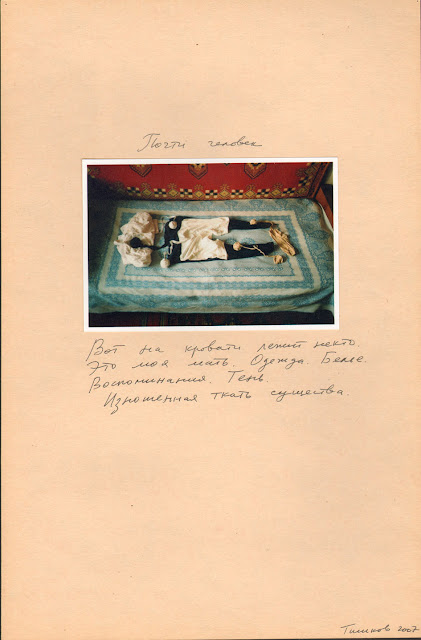 Почти человек
Вот на кровати лежит некто.
Это моя мать. Одежды. Белье.
Воспоминания. Тень.
Изношенная ткать существа.
Тишков 2007